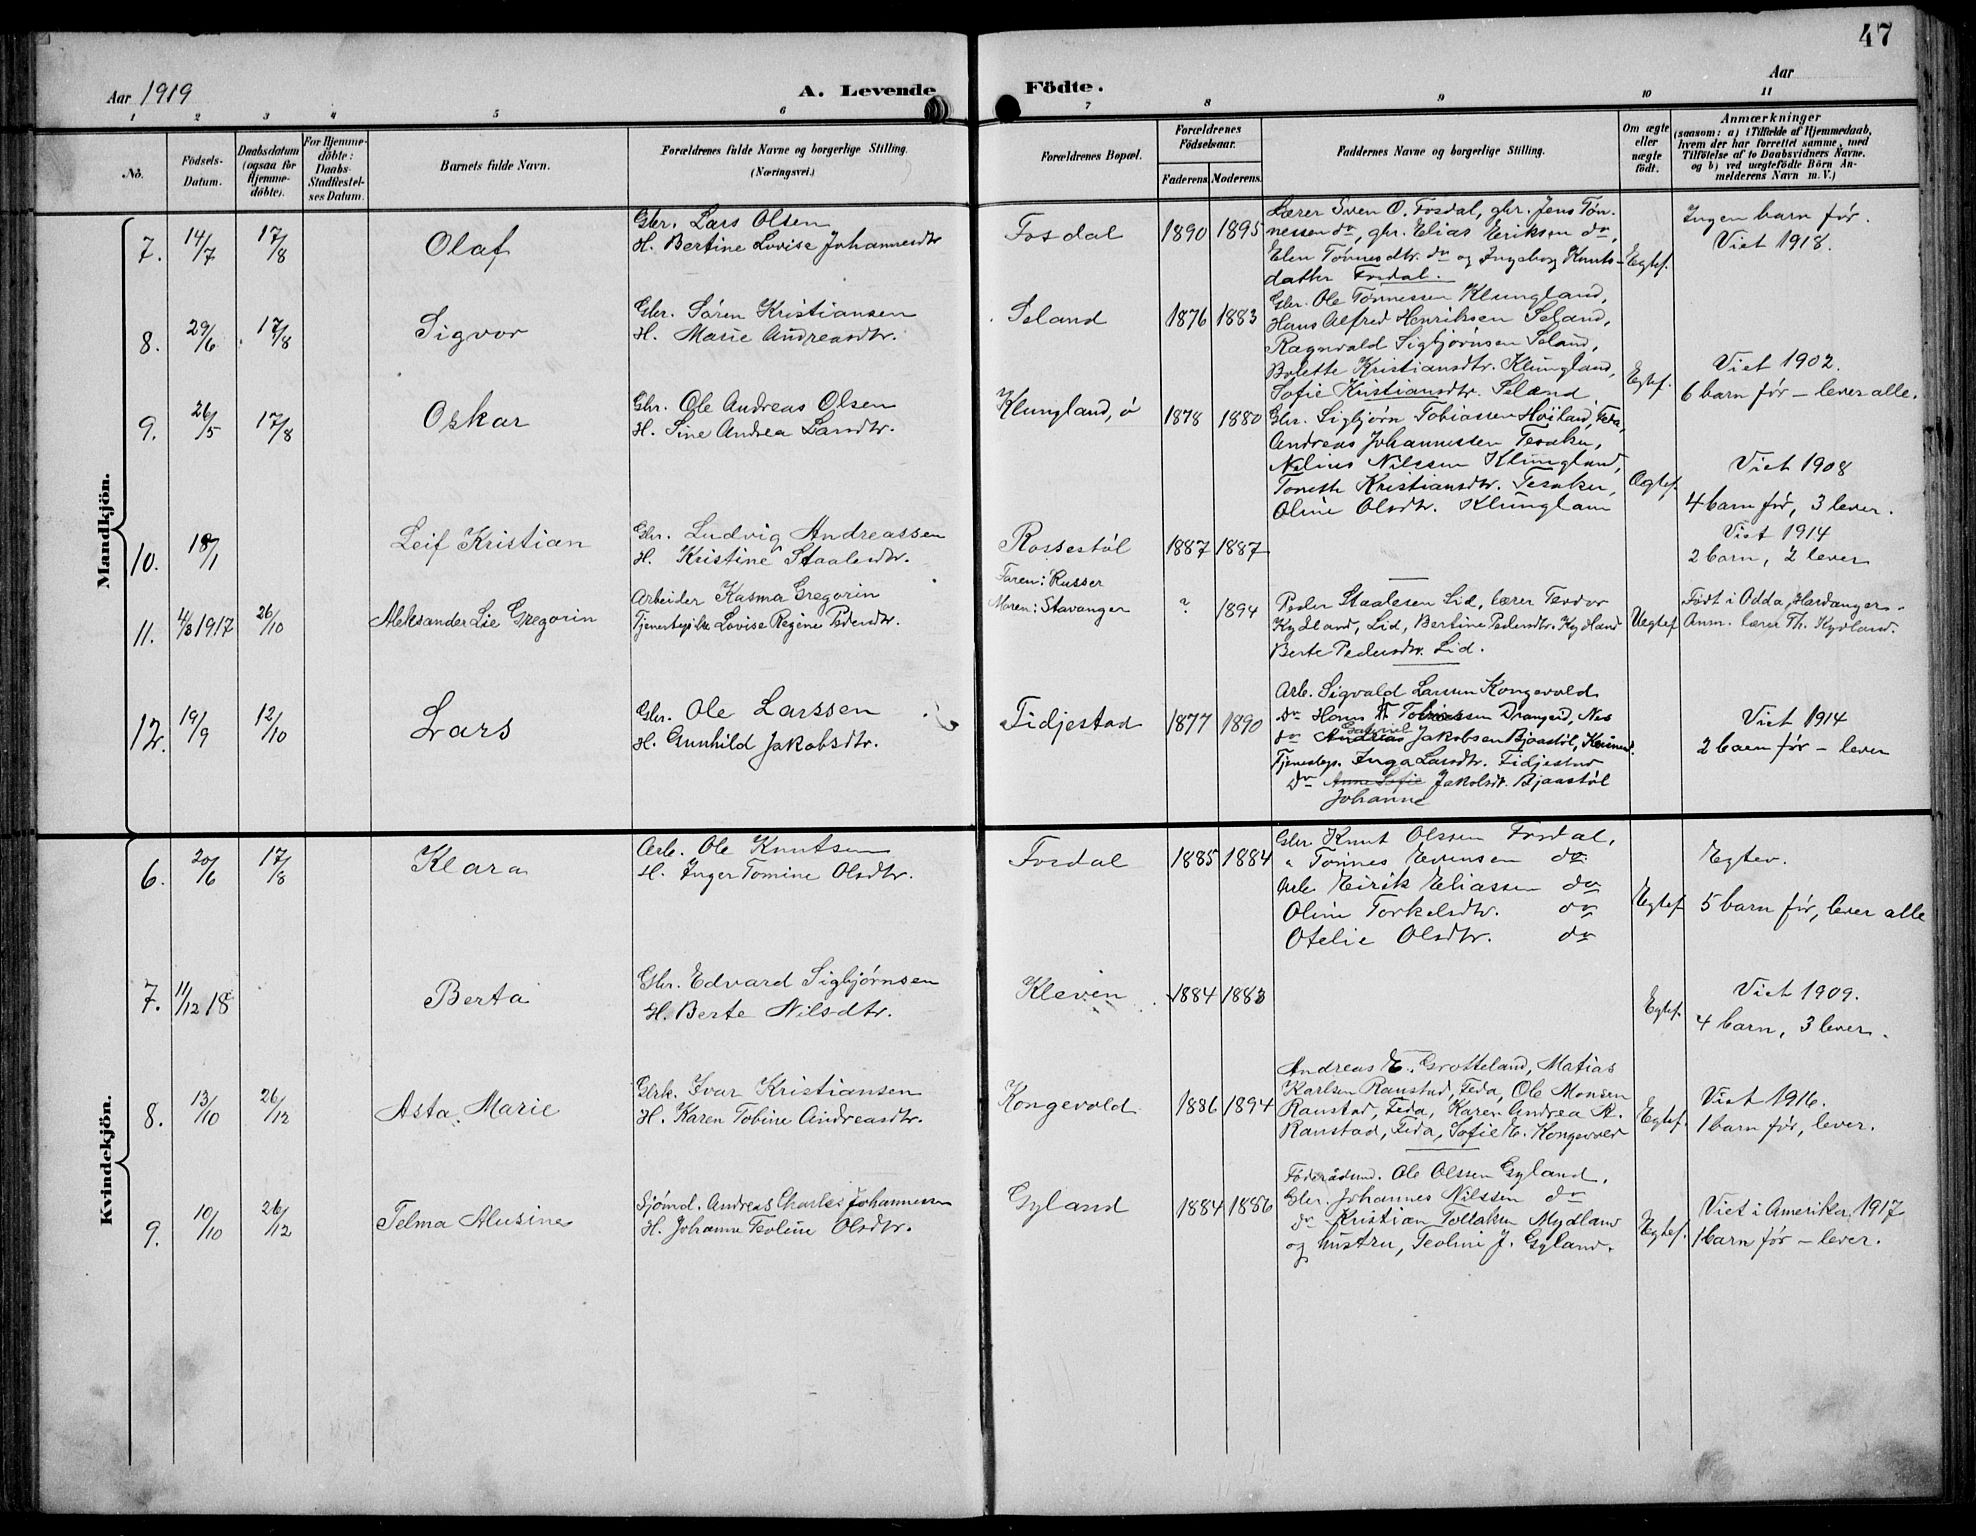 47
Aar 1919
A. Levende Födte.
Aar
1 2 3 4 5 6 7 8 9 10 11
No.
Födsels-
Datum.
Daabsdatum
(ogsaa for
Hjemme-
döbte).
For Hjemme-
döbte:
Daabs-
Stadfæstel-
ses Datum.
Barnets fulde Navn.
Forældrenes fulde Navne og borgerlige Stilling.
(Næringsvei.)
Forældrenes Bopæl.
Forældrenes
Födselsaar.
Faderens. Moderens.
Faddernes Navne og borgerlige Stilling.
Om ægte
eller
uægte
födt.
Anmærkninger
(saasom: a) i Tilfælde af Hjemmedaab,
hvem der har forrettet samme, med
Tilföielse af to Daabsvidners Navne.
og b) ved uægtefödte Börn An-
melderens Navn m. V.)
Mandkjön.
7. 14/7 17/8 Olaf
Gbr. Lars Olsen
H. Bertine Lovise Johannesdtr
Fosdal 1890 1895
Lærer Sven O. Fosdal, gbr. Jens Tøn-
nessen do, gbr. Elias Eriksen do,
Elen Tønnesdtr. do og Ingeborg Knuts-
datter Fosdal.
Egtef.
Ingen barn før.
Viet 1918.
8. 29/6 17/8 Sigvor
Gbr. Søren Kristiansen
H. Marie Andreasdtr.
Seland 1876 1883
Gbr. Ole Tønnessen Klungland,
Hans Alfred Henriksen Seland,
Ragnvald Sigbjørnsen Seland,
Bolette Kristiansdtr. Klungland,
Sofie Kristiansdtr. Seland
Egtef.
Viet 1902.
6 barn før – lever alle.
9. 26/5 17/8 Oskar
Gbr. Ole Andreas Olsen
H. Sine Andrea Larsdtr.
Klungland, ø 1878 1880
Gbr. Sigbjørn Tobiassen Høiland, Feda,
Andreas Johannessen Tesaker,
Nilius Nilssen Klungland,
Tonette Kristiansdtr. Tesaker,
Oline Olsdtr. Klunglan
Ægtef.
Viet 1908
4 barn før, 3 lever.
10. 18/1 Leif Kristian
Gbr. Ludvig Andreassen
H. Kristine Staalesdtr.
Rossestøl 1887 1887
Viet 1914
2 barn, 2 lever
11. 4/3 1917 26/10 Aleksander Lie Gregorin
Arbeider Kasma Gregorin
Tjenestepike Lovise Regine Pedersdtr.
Faren: Russer
Moren: Stavanger ? 1894
Peder Staalesen Lid, lærer Teodor
Kydland, Lid, Bertine Pedersdtr. Kydland
Berte Pedersdtr. Lid.
Uegtef
Født i Odda, Hardanger.
Anm. lærer Th. Kydland.
12. 19/9 12/10 Lars
Gbr. Ole Larssen
H. Gunhild Jakobsdtr.
Fidjestad 1877 1890
Arb. Sigvald Larsen Kongevold
do Hans Tobiassen Drangeid, Nes
do Andreas Gabriel Jakobsen Bjaastøl,
Tjenestep. Inga Larsdtr. Fidjestad
Do Anne Sofie Jakobsdtr. Bjaastøl
Johanne
Viet 1914
2 barn før – lever
Kvindekjön.
6. 20/6 17/8 Klara
Arb. Ole Knutsen
H. Inger Tomine Olsdtr.
Fosdal 1885 1884
Gbr. Knut Olssen Fosdal,
" Tønnes Evensen do
Eirik Eliassen do
Oline Torkelsdtr. do
Otelie Olsdtr. do
Egtef
Egtev.
5 barn før, lever alle
7. 11/12 18 Berta
Gbr. Edvard Sigbjørnsen
H. Berte Nilsdtr.
Kleven 1884 1883
Egtef.
Viet 1909.
4 barn, 3 lever.
8. 13/10 26/12 Asta Marie
Gbrk. Ivar Kristiansen
H. Karen Tobine Andreasdtr.
Kongevold 1886 1894
Andreas E. Grotteland, Matias
Karlsen Ranstad, Feda, Ole Monsen
Ranstad, Feda, Karen Andrea A.
Ranstad, Feda, Sofie E. Kongevold
Egtef.
Viet 1916.
1 barn før, lever.
9. 10/10 26/12 Telma Alusine
Sjømd. Andreas Charles Johannessen
H. Johanne Teoline Olsdtr.
Gyland 1884 1886
Føderådsmd. Ole Olssen Gyland,
Gbr. Johannes Nilssen do
do Kristian Tollaksen Mydland
og hustru, Teoline J. Gyland.
Egtef.
Viet i Amerika 1917
1 barn før – lever.